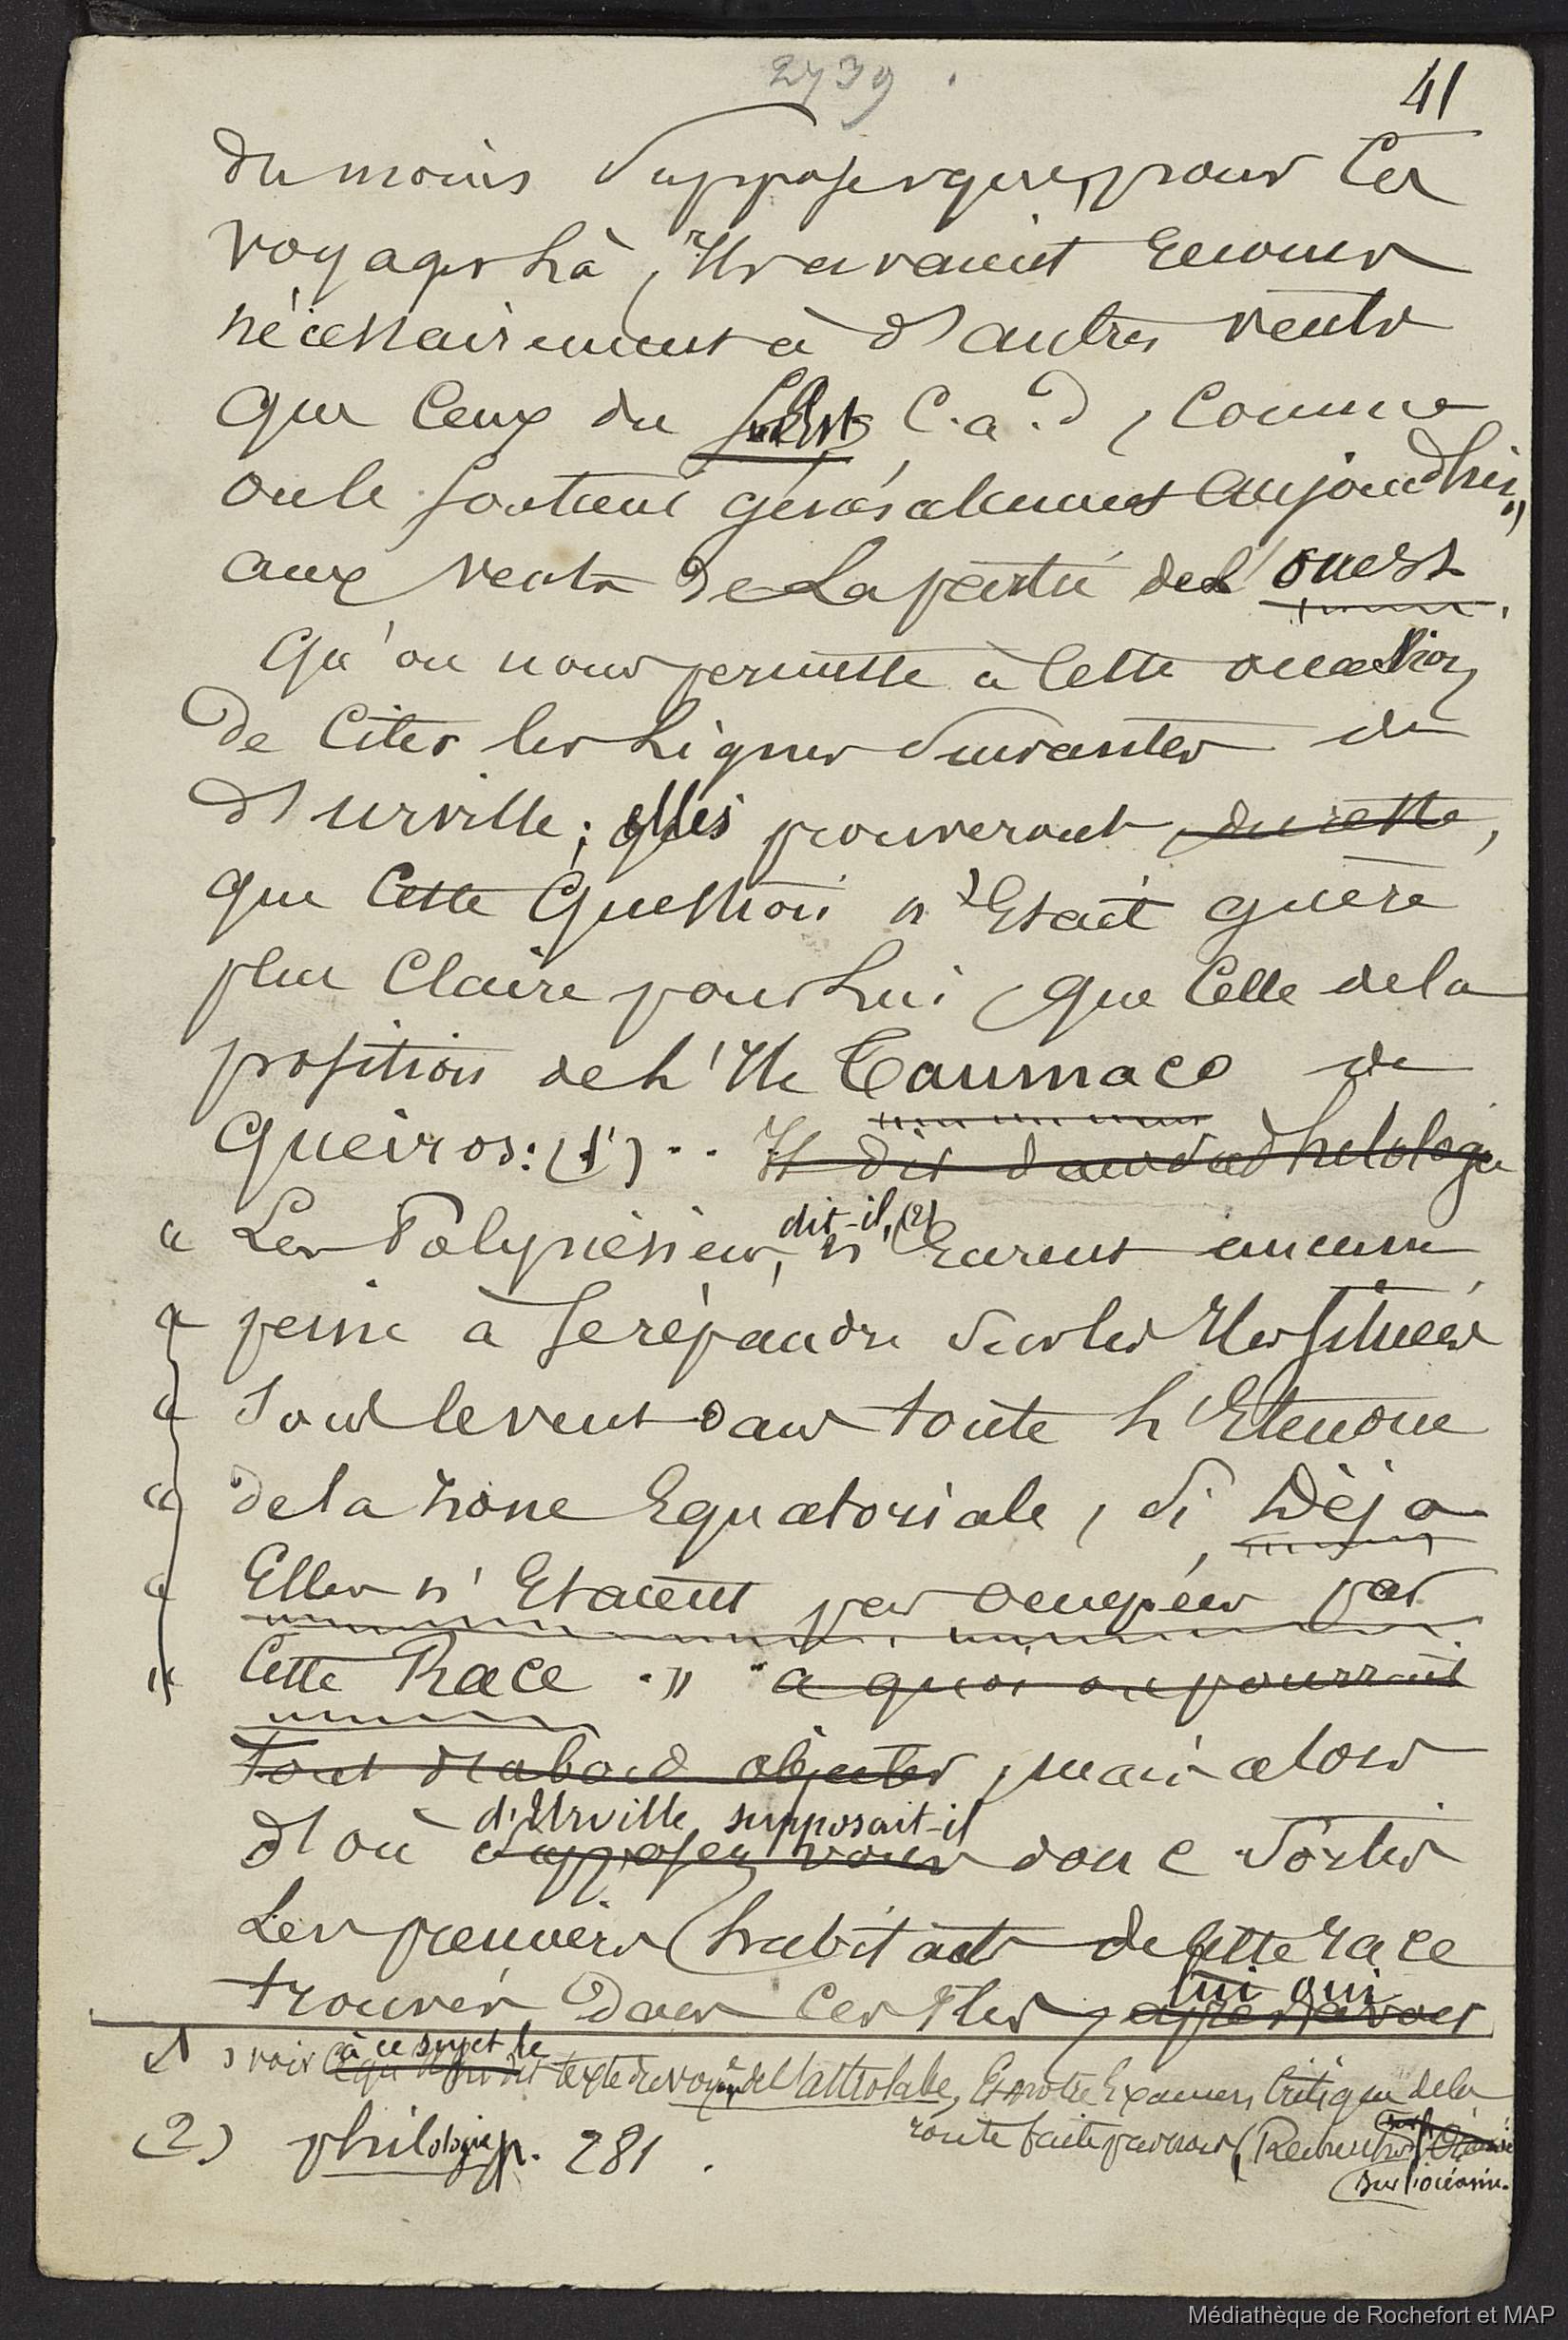 2739
41
du moins supposer que, pour ces
voyages là, ils avaient recours
nécessairement à d'autres vents
que ceux du Sud Est, C.a.d, comme
on le soutient généralement aujourd'hui,
aux vents de la partie de l'ouest.
Qu'on nous permette à cette occasion
de citer les lignes suivantes de
d'urville; elles prouveront du reste,
que cette question n'Etait guère
plus claire pour lui, que celle de la
position de l'Ile Taumaco de
Queiros: (1) .. Il dit dans sa philologie
« Les Polynésiens, dit-il, (2) n'Eurent aucune
« peine à se répandre sur les Iles situées
« sous le vent dans toute l'Etendue
« de la zone Equatoriale, si Déjà
« Elles n'Etaient pas occupées par
« cette Race ." a quoi on pourrait
tout d'abord objecter, mais alors
d'où d'Urville supposait-il supposez vous donc sortis
Les premiers habitants de cette race
trouvés dans ces Iles, lui qui après avoir
(1) voir à ce sujet le texte du voyage de l'astrolabe, Et notre Examen Critique de la
route faite par nous (
sur l'océanie.
(2) philologie p. 281.
Médiathèque de Rochefort et MAP